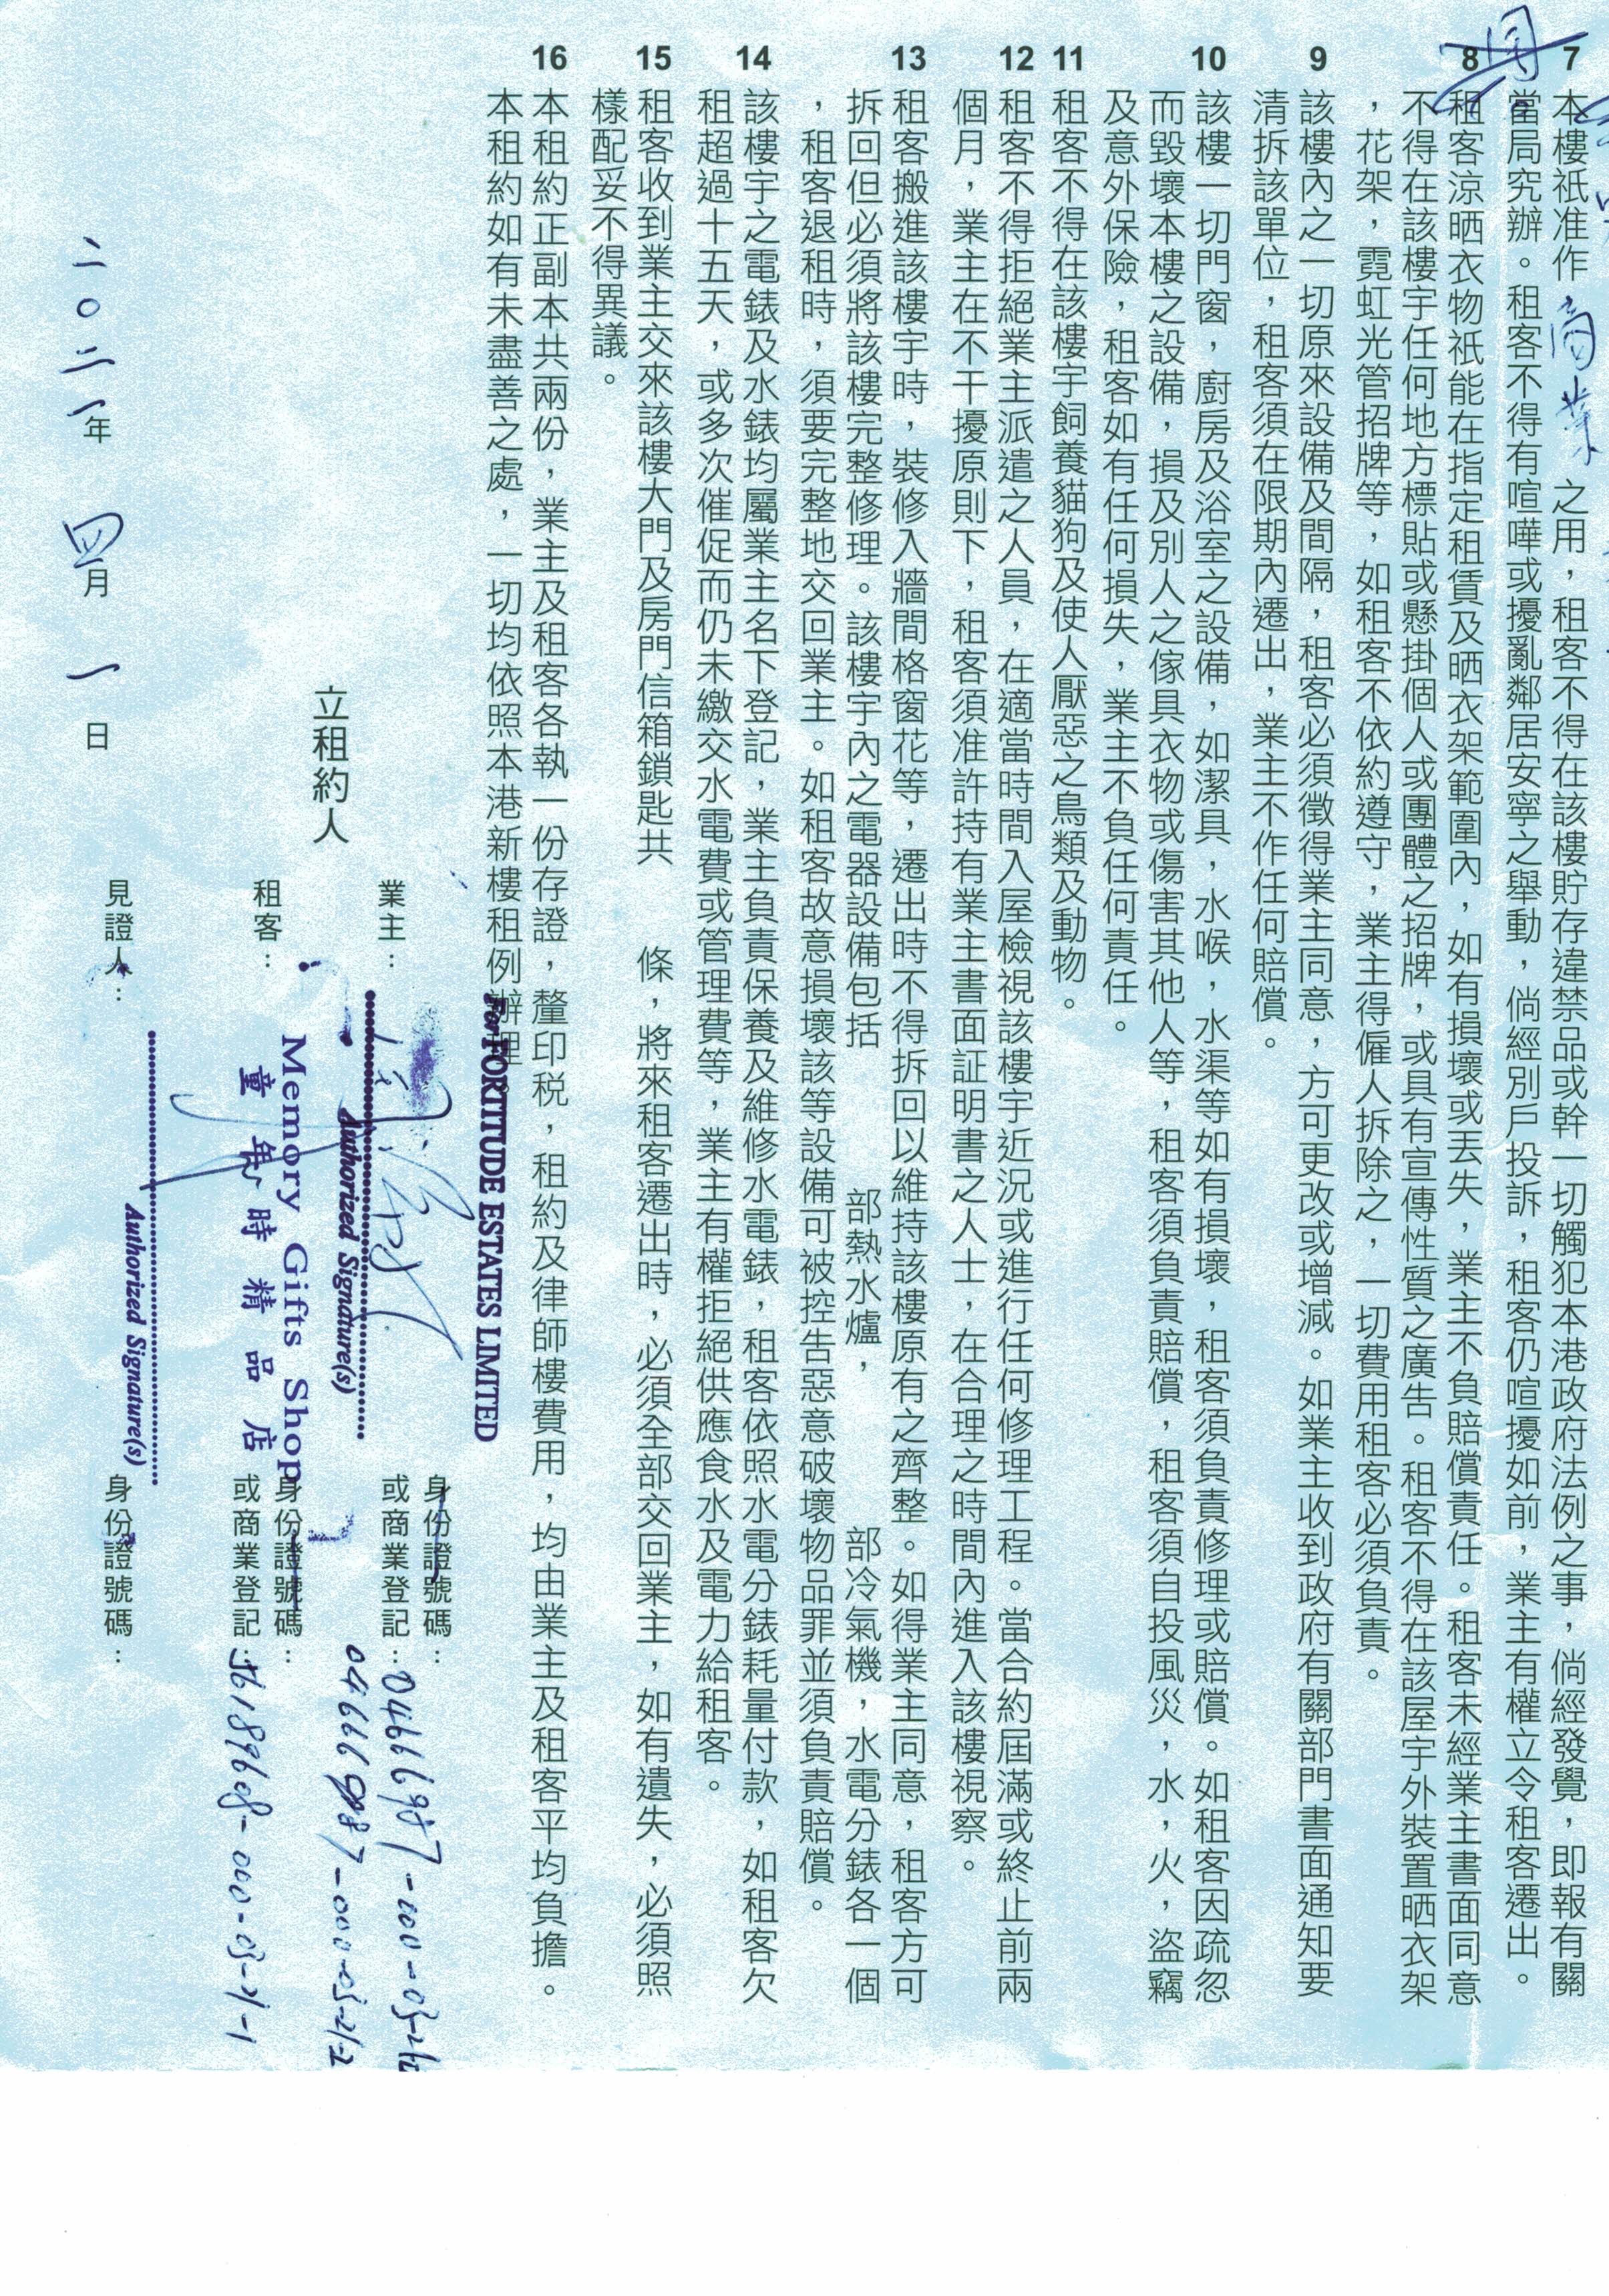 7 本樓祇准作 商業 之用，租客不得在該樓貯存違禁品或幹一切觸犯本港政府法例之事，倘經發覺，即報有關
當局究辦。租客不得有喧嘩或擾亂鄰居安寧之舉動，倘經別戶投訴，租客仍喧擾如前，業主有權立令租客遷出。
8 租客涼晒衣物祇能在指定租賃及晒衣架範圍內，如有損壞或丟失，業主不負賠償責任。租客未經業主書面同意
不得在該樓宇任何地方標貼或懸掛個人或團體之招牌，或具有宣傳性質之廣告。租客不得在該屋宇外裝置晒衣架
，花架，霓虹光管招牌等，如租客不依約遵守，業主得僱人拆除之，一切費用租客必須負責。
9 該樓內之一切原來設備及間隔，租客必須徵得業主同意，方可更改或增減。如業主收到政府有關部門書面通知要
清拆該單位，租客須在限期內遷出，業主不作任何賠償。
10 該樓一切門窗，廚房及浴室之設備，如潔具，水喉，水渠等如有損壞，租客須負責修理或賠償。如租客因疏忽
而毀壞本樓之設備，損及別人之傢具衣物或傷害其他人等，租客須負責賠償，租客須自投風災，水，火，盜竊
及意外保險，租客如有任何損失，業主不負任何責任。
11 租客不得在該樓宇飼養貓狗及使人厭惡之鳥類及動物。
12 租客不得拒絕業主派遣之人員，在適當時間入屋檢視該樓宇近況或進行任何修理工程。當合約屆滿或終止前兩
個月，業主在不干擾原則下，租客須准許持有業主書面証明書之人士，在合理之時間內進入該樓視察。
13 租客搬進該樓宇時，裝修入牆間格窗花等，遷出時不得拆回以維持該樓原有之齊整。如得業主同意，租客方可
拆回但必須將該樓完整修理。該樓宇內之電器設備包括 部熱水爐， 部冷氣機，水電分錶各一個
，租客退租時，須要完整地交回業主。如租客故意損壞該等設備可被控告惡意破壞物品罪並須負責賠償。
14 該樓宇之電錶及水錶均屬業主名下登記，業主負責保養及維修水電錶，租客依照水電分錶耗量付款，如租客欠
租超過十五天，或多次催促而仍未繳交水電費或管理費等，業主有權拒絕供應食水及電力給租客。
15 租客收到業主交來該樓大門及房門信箱鎖匙共 條，將來租客遷出時，必須全部交回業主，如有遺失，必須照
樣配妥不得異議。
16 本租約正副本共兩份，業主及租客各執一份存證，釐印税，租約及律師樓費用，均由業主及租客平均負擔。
本租約如有未盡善之處，一切均依照本港新樓租例辦理
For FORTITUDE ESTATES LIMITED
立租約人
業主：
Authorized Signature(s)
身份證號碼：
或商業登記：04666987-000-03-21-2
04666987-000-03-21-2
租客：
Memory Gifts Shop
童年時精品店
身份證號碼：
或商業登記：36189608-000-03-21-1
見證人：
Authorized Signature(s)
身份證號碼：
二〇二一年 四月 一日